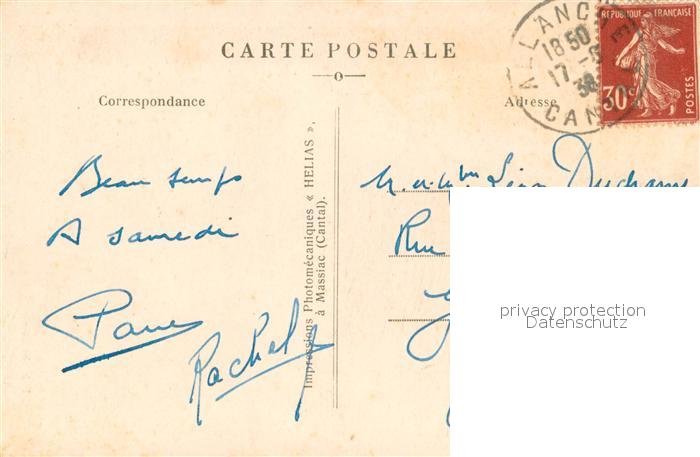 CARTE POSTALE
Correspondance
Adresse
ALLANCHE
18 50
17 -8
38
CANTAL
RÉPUBLIQUE FRANÇAISE
30c
POSTES
Beau temps
A samedi
Rachel
Impressions Photomécaniques « HELIAS »,
à Massiac (Cantal).
M. et Mme Léon
Rue
privacy protection
Datenschutz